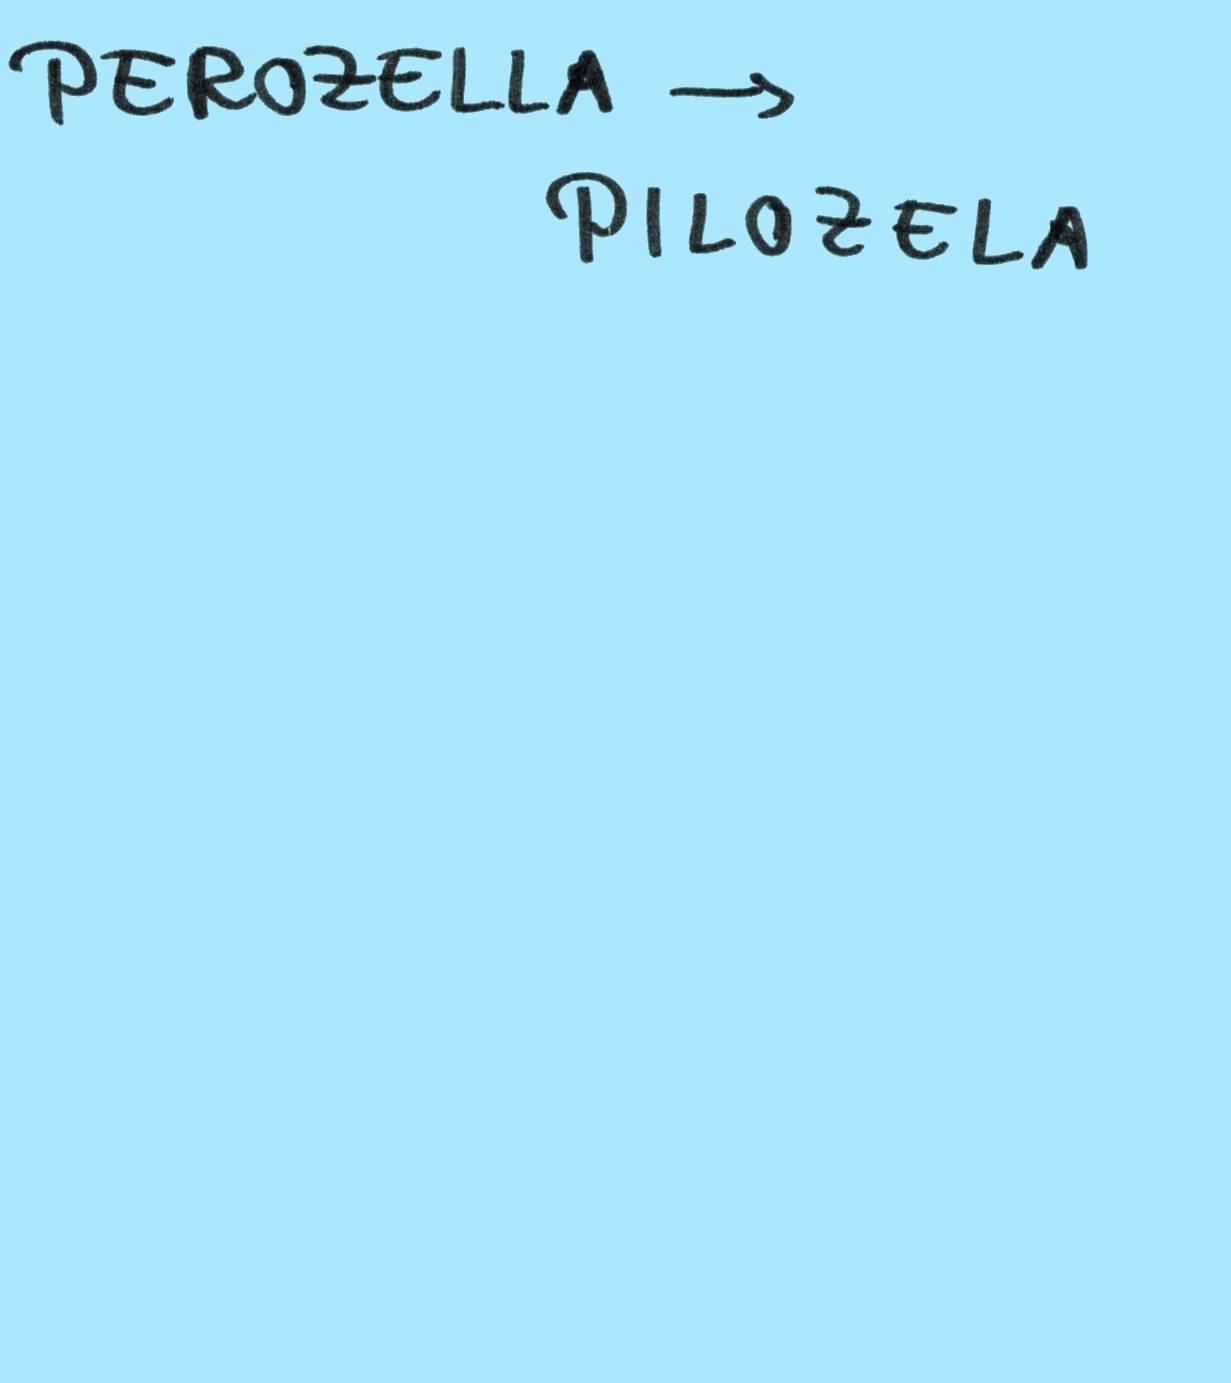 PEROZELLA →
PILOZELA